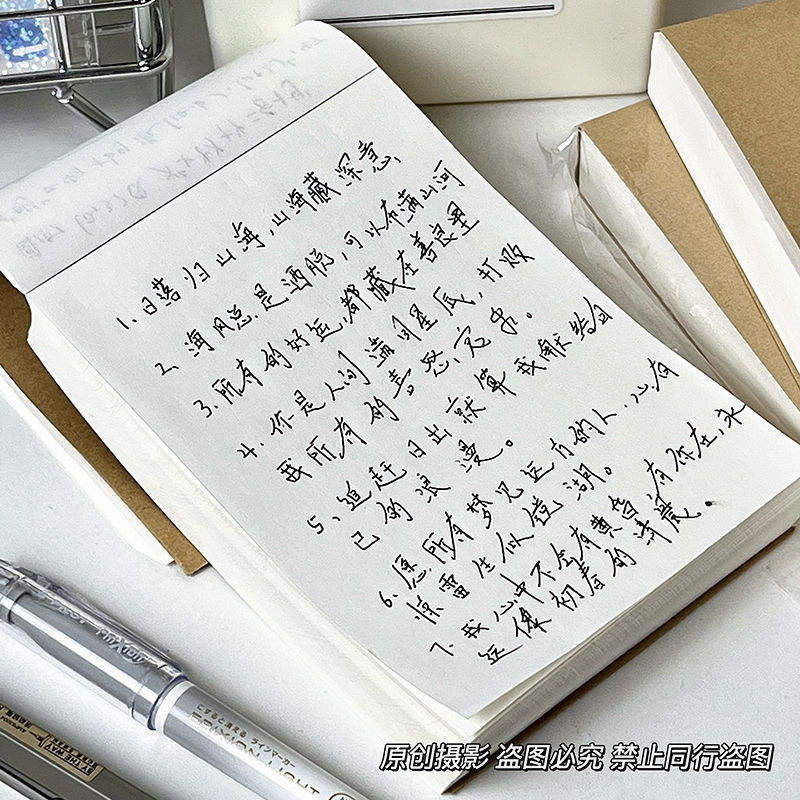 1、日落归山海,山海藏深意
2、海风总是洒脱,可以布满山河
3、所有的好运,都藏在善良里
4、你是人间满目星辰,打败
我所有的喜怒哀乐。
5、追赶日出就算我献给自
己的浪漫。
6、愿所有梦见远方的人,心有
惊雷生似镜湖。
7、我心中不会有黄昏,有你在,永
远像初春的清晨。
原创摄影 盗图必究 禁止同行盗图